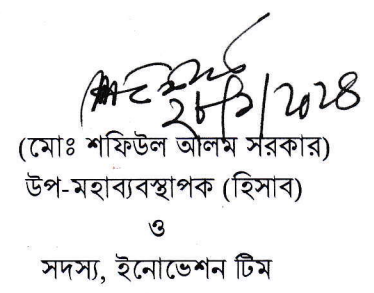 (মোঃ শফিউল আলম সরকার)
উপ-মহাব্যবস্থাপক (হিসাব)
ও
সদস্য, ইনোভেশন টিম